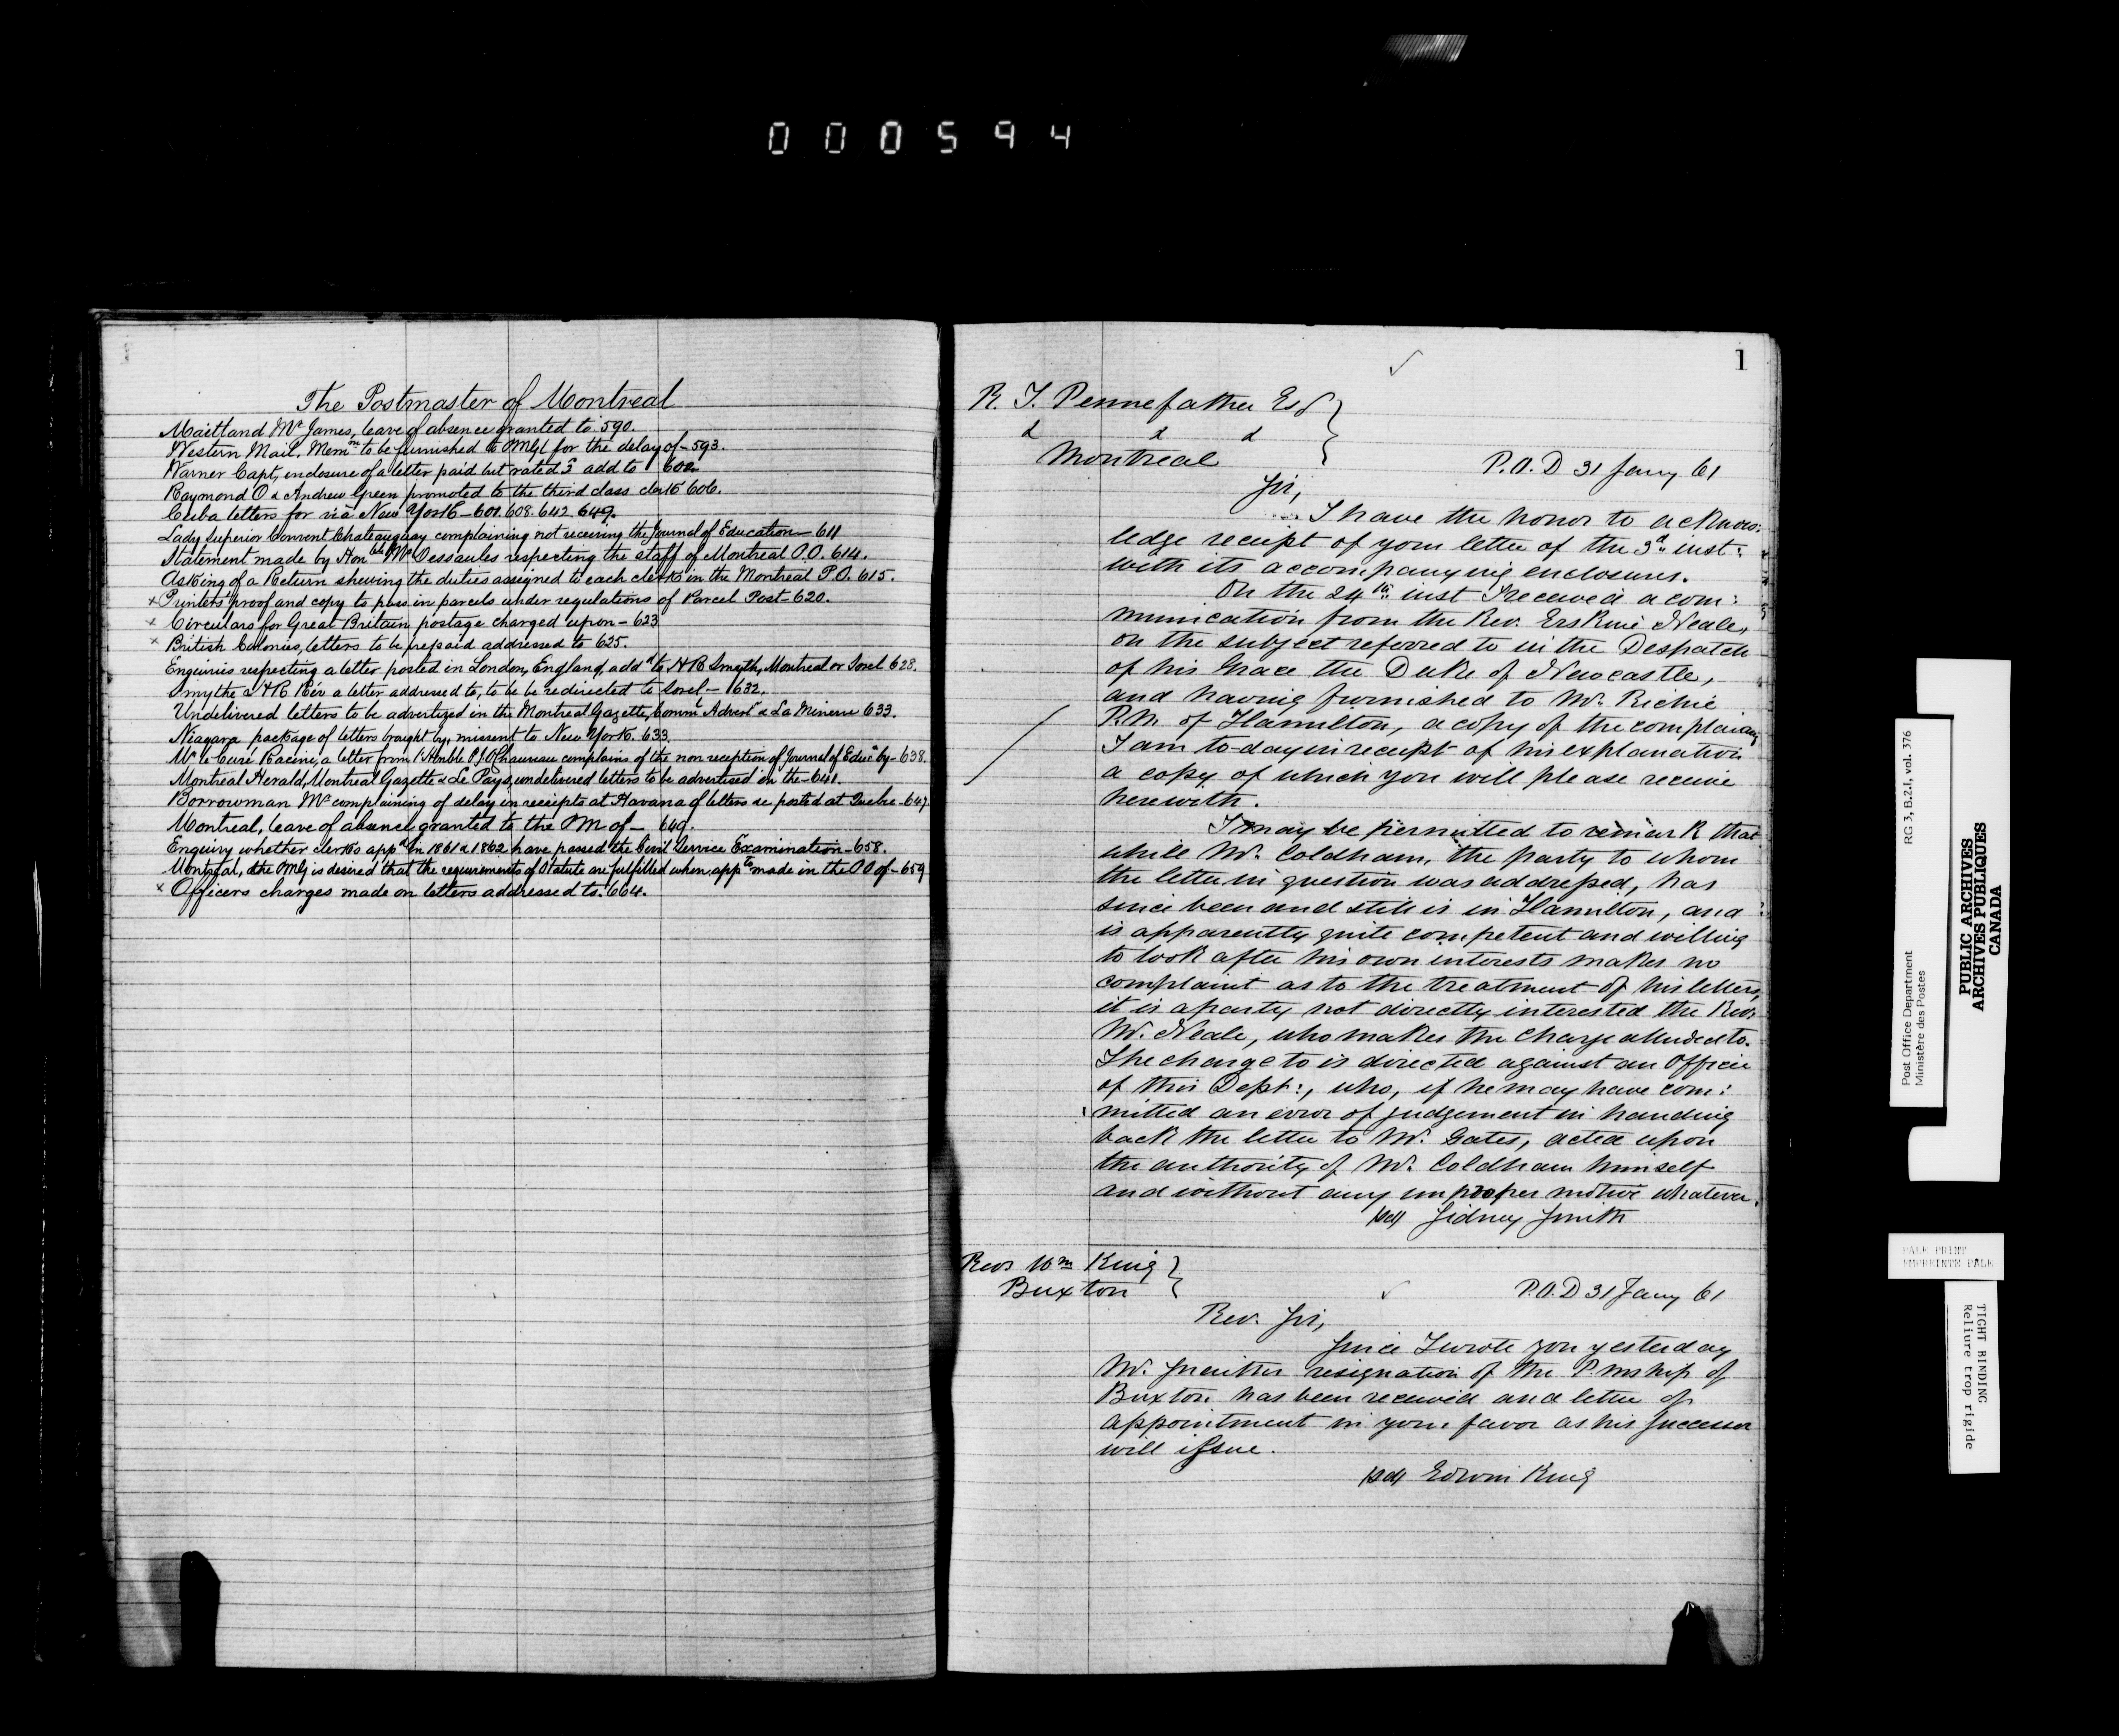 000594
The Postmaster of Montreal
Maitland Mr James, leave of absence granted to 590.
Western Mail, Memm to be furnished to PMGl for the delay of - 593.
Warner Capt, enclosure of a letter paid but rated add to 602.
Raymond O & Andrew Green promoted to the third class clerks 606.
Cuba letters for via New York - 601. 608. 642. 649.
Lady Superior Convent Chateauguay complaining not receiving the Journal of Education - 611
Statement made by Honble Mr Dessaules respecting the staff of Montreal P.O. 614.
Asking of a Return shewing the duties assigned to each clerk in the Montreal P.O. 615.
x Printers' proof and copy to pass in parcels under regulations of Parcel Post - 620.
x Circulars for Great Britain postage charged upon - 623
x British Colonies, letters to be prepaid addressed to 625.
Enquiries respecting a letter posted in London, England, addd to HR Smyth, Montreal or Sorel 628.
Smythe HR a letter addressed to, to be be redirected to Sorel - 632.
Undelivered letters to be advertized in the Montreal Gazette, Comml Advert & La Minerve 633.
Niagara package of letters brought by, missent to New York. 633.
Mr le Curé Racine, a letter from l'Honble PJO Chauveau complains of the non reception of Journal of Educn by - 638.
Montreal Herald, Montreal Gazette & Le Pays, undelivered letters to be advertised in the - 641.
Borrowman Mr complaining of delay in receipts at Havana of letters &c posted at Quebec - 647
Montreal, leave of absence granted to the PM of - 649.
Enquiry whether clerks appd in 1861 & 1862 have passed the Civil Service Examination - 658.
Montreal, the PMG is desired that the requirements of Statute are fulfilled when appts made in the PO of - 659
x Officers charges made on letters addressed to. 664.
1
R. T. Pennefather Esq
& & &
Montreal
P.O.D 31 Jany 61
Sir,
I have the honor to acknow:
ledge receipt of your letter of the 3d inst:
with its accompanying enclosures.
On the 24th inst I received a com:
munication from the Rev. Erskine Neale,
on the subject referred to in the Despatch
of his Grace the Duke of Newcastle,
and having furnished to Mr. Richie
P.M. of Hamilton, a copy of the complaint,
I am to-day in receipt of his explanation
a copy of which you will please receive
herewith.
I may be permitted to remark that
while Mr. Coldham, the party to whom
the letter in question was addressed, has
since been and still is in Hamilton, and
is apparently quite competent and willing
to look after his own interests makes no
complaint as to the treatment of his letters,
it is a party not directly interested the Rev.
Mr. Neale, who makes the charge alluded to.
The charge to is directed against an Officer
of this Dept:, who, if he may have com:
mitted an error of judgement in handing
back the letter to Mr. Gates, acted upon
the authority of Mr. Coldham himself
and without any improper motive whatever.
(sd) Sidney Smith
Revd Wm King
Buxton
P.O.D 31 Jany 61
Rev. Sir,
Since I wrote you yesterday
Mr. resignation of the P.Mship of
Buxton has been received and letter of
appointment in your favor as his successor
will issue.
(sd) Edwin King
RG 3, B.2.I, vol. 376
Post Office Department
Ministère des Postes
PUBLIC ARCHIVES
ARCHIVES PUBLIQUES
CANADA
PALE PRINT
EMPREINTE PALE
TIGHT BINDING
Reliure trop rigide